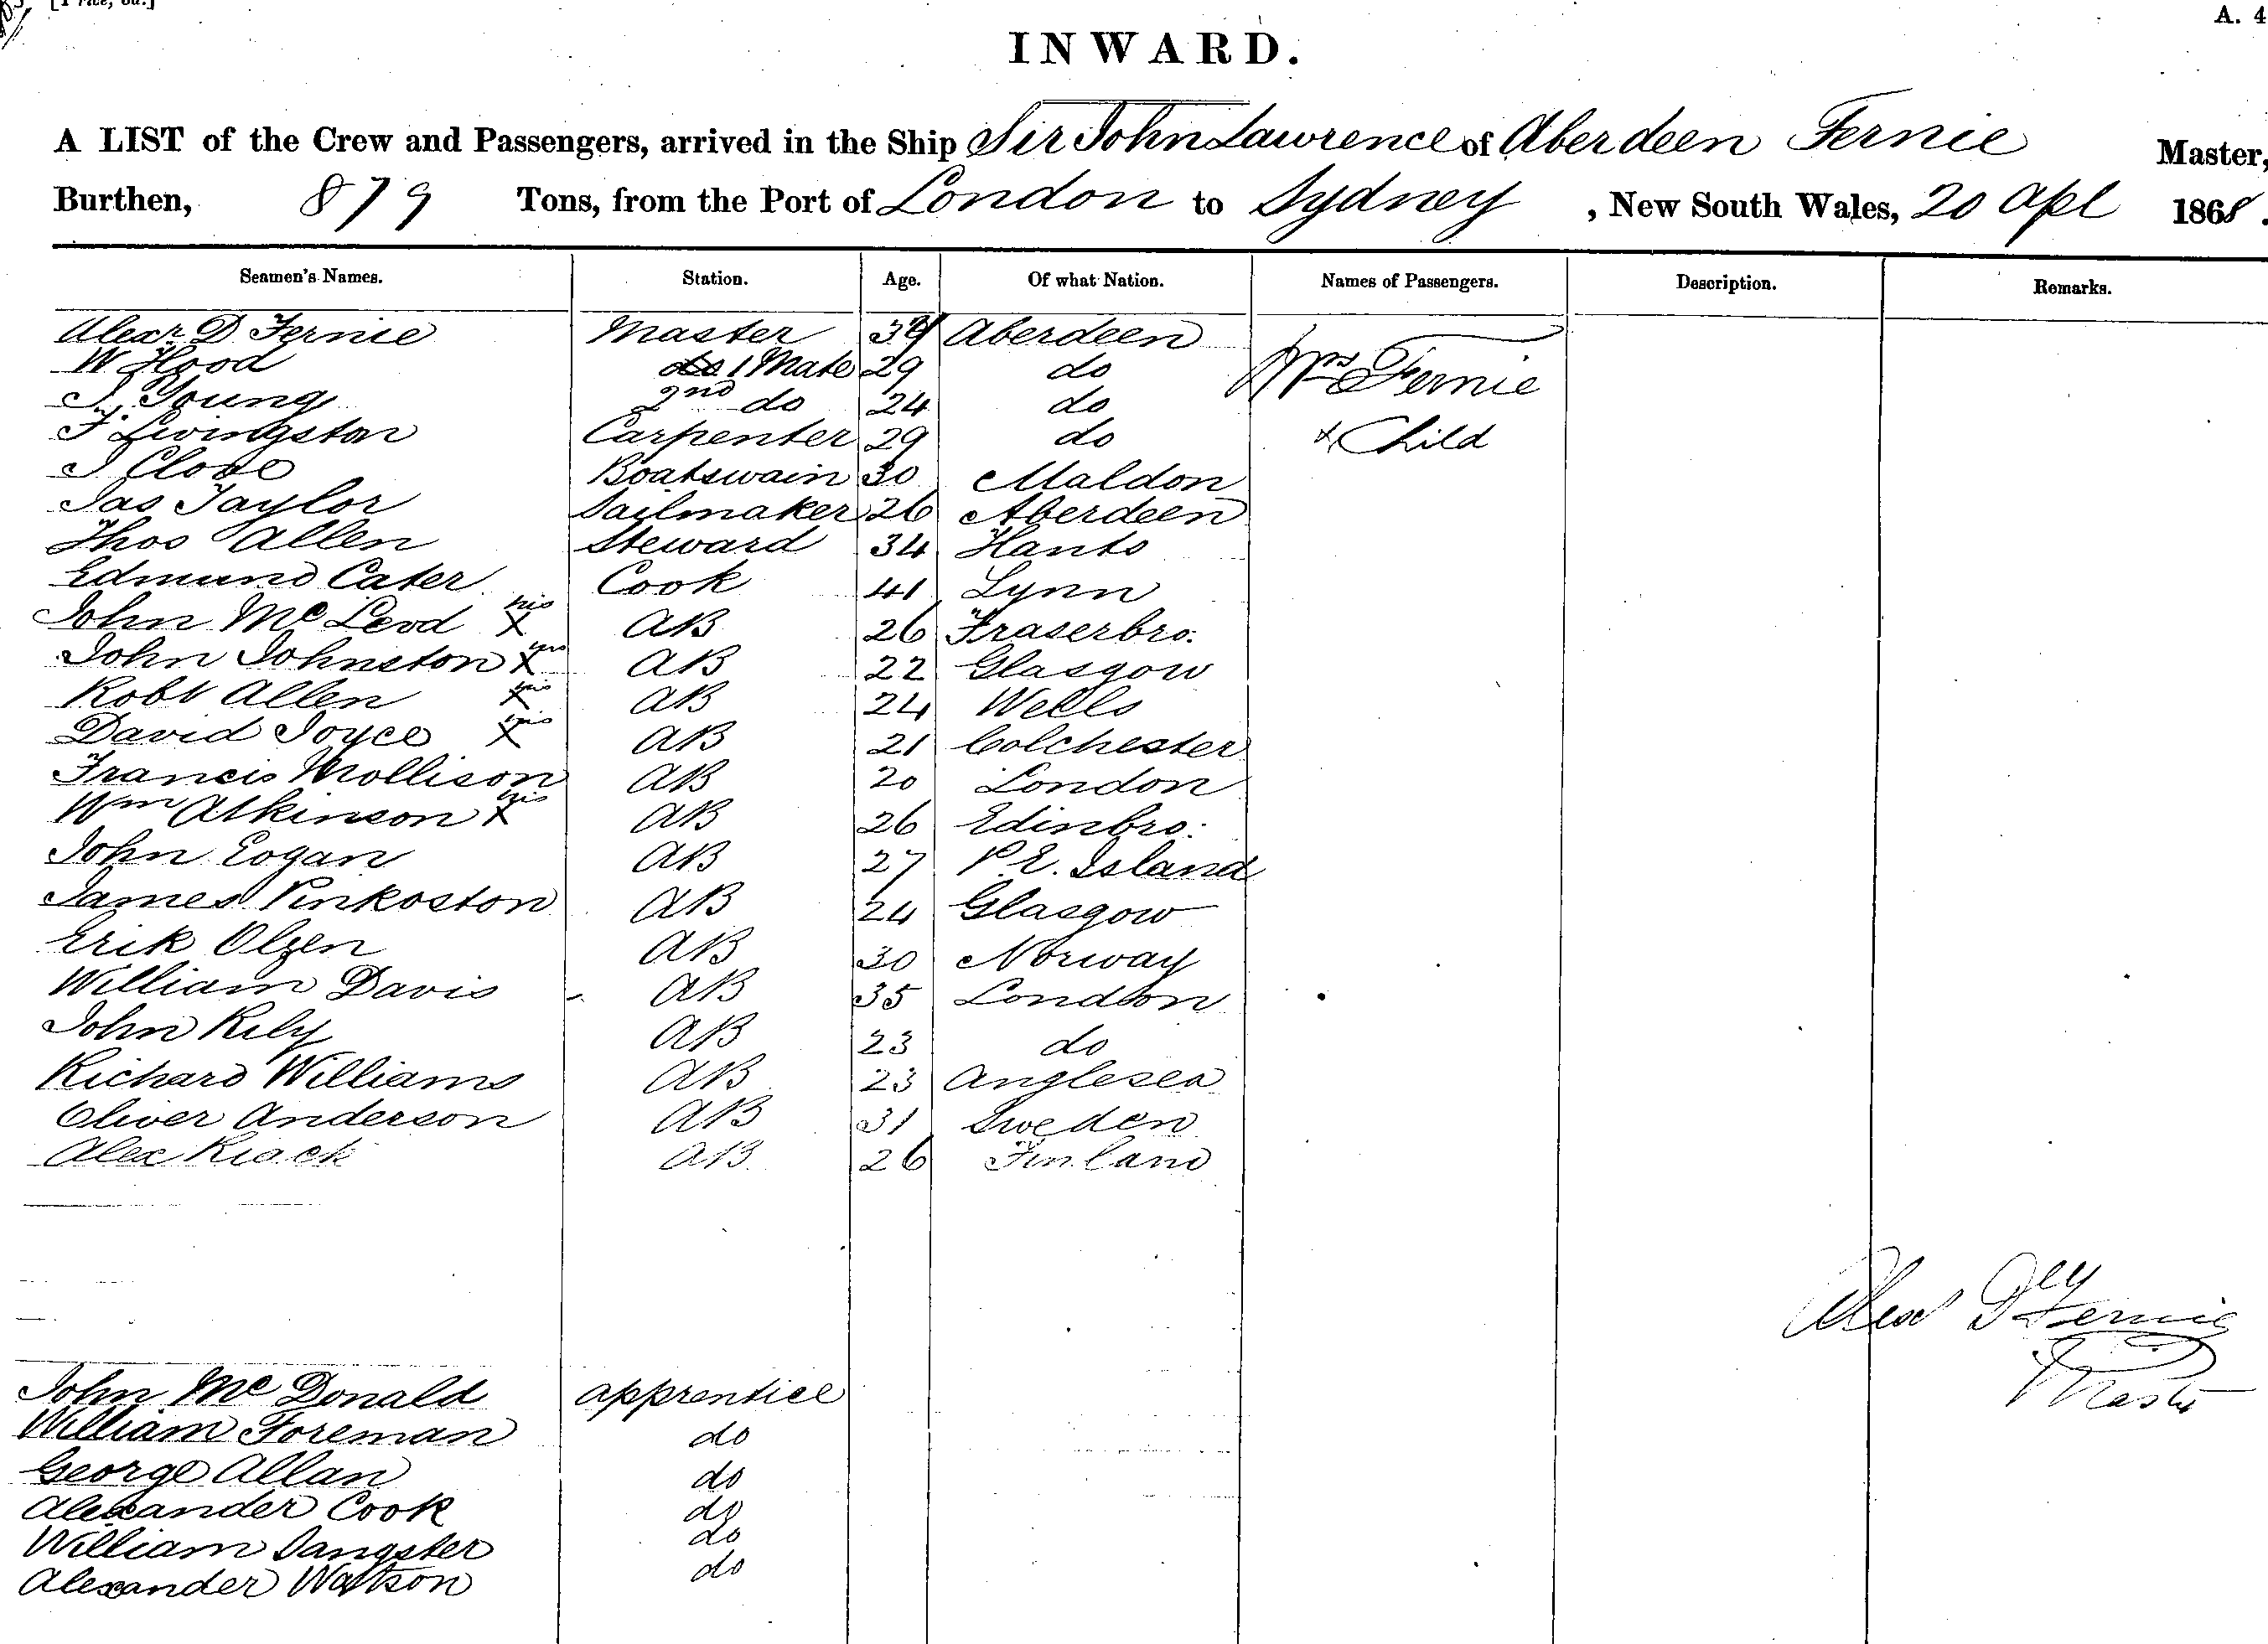 A. 4
INWARD.
A LIST of the Crew and Passengers, arrived in the Ship Sir John Lawrence of Aberdeen Fernie Master,
Burthen, 879 Tons, from the Port of London to Sydney, New South Wales, 20 Apl 1868.
Seamen's Names. Station. Age. Of what Nation. Names of Passengers. Description. Remarks.
Alexr D Fernie Master Aberdeen
W Hood 1 Mate 29 do Mrs Fernie
Young 2nd do 24 do
Livingston Carpenter 29 do & Child
Boatswain 30 Maldon
Jas Taylor Sailmaker 26 Aberdeen
Thos Allen Steward 34 Hants
Edmund Cater Cook 41 Lynn
John Mc Leod his X AB 26 Fraserbro:
John Johnston his X AB 22 Glasgow
Robt Allen his X AB 24 Wells
David Joyce his X AB 21 Colchester
Francis Mollison AB 20 London
Wm Atkinson his X AB 26 Edinbro:
John Eogan AB 27 P.E. Island
James Pinkoston AB 24 Glasgow
Erik Olzen AB 30 Norway
William Davis AB 35 London
John Rily AB 23 do
Richard Williams AB 23 Anglesea
Oliver Anderson AB 31 Sweden
Alex Riack AB 26 Finland
Alexr Fernie
Master
John Mc Donald apprentice
William Foreman do
George Allan do
Alexander Cook do
William Sangster do
Alexander Watson do